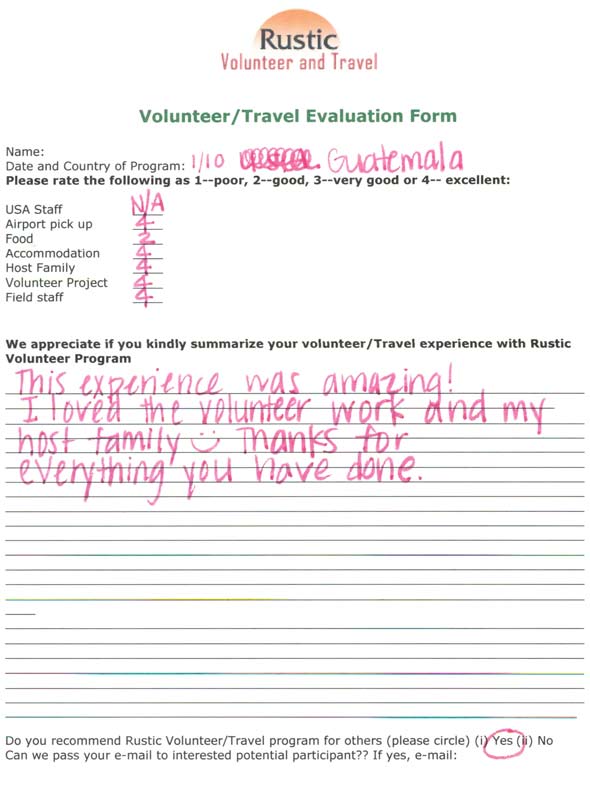 Rustic
Volunteer and Travel
Volunteer/Travel Evaluation Form
Name:
Date and Country of Program: 1/10 Guatemala
Please rate the following as 1--poor, 2--good, 3--very good or 4-- excellent:
USA Staff N/A
Airport pick up 4
Food 2
Accommodation 4
Host Family 4
Volunteer Project 4
Field staff 4
We appreciate if you kindly summarize your volunteer/Travel experience with Rustic
Volunteer Program
This experience was amazing!
I loved the volunteer work and my
host family Thanks for
everything you have done.
Do you recommend Rustic Volunteer/Travel program for others (please circle) (i) Yes (ii) No
Can we pass your e-mail to interested potential participant?? If yes, e-mail: